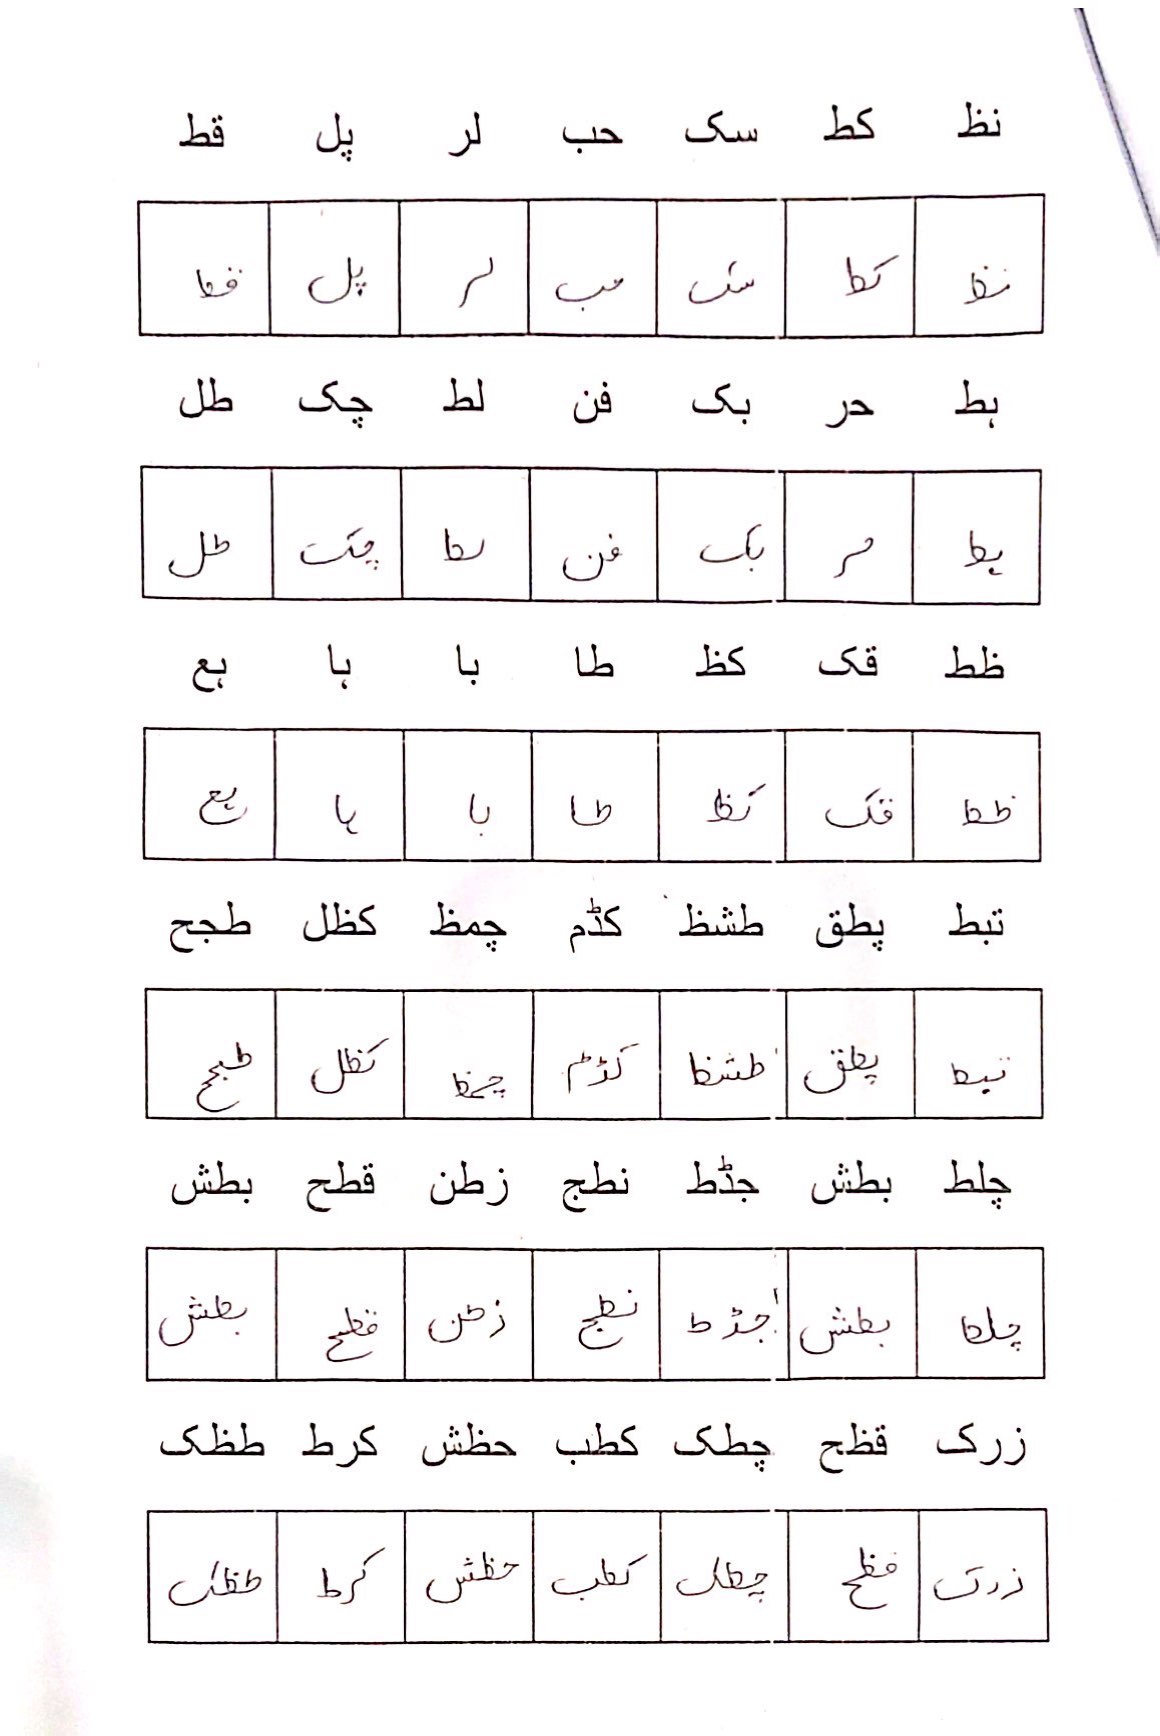 نظ کط سک حب لر پل قط
نظ کط سک حب لر پل قط
ہط حر بک فن لط چک طل
ہط حر بک فن لط چک طل
ظط قک کظ طا با ہا ہع
ظط قک کظ طا با ہا ہع
تبط پطق طشظ کڈم چمظ کظل طجح
تبط پطق طشظ کڈم چمظ کظل طجح
چلط بطش جڈط نطج زطن قطح بطش
چلط بطش جڈط نطج زطن قطح بطش
زرک قظح چطک کطب حظش کرط طظک
زرک قظح چطک کطب حظش کرط طظک